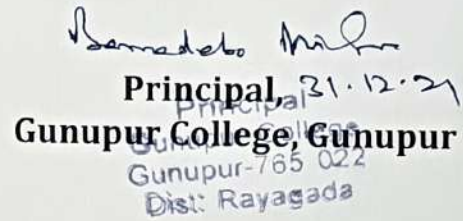 Principal, 31.12.21
Gunupur College, Gunupur
Principal
Gunupur College
Gunupur-765 022
Dist: Rayagada